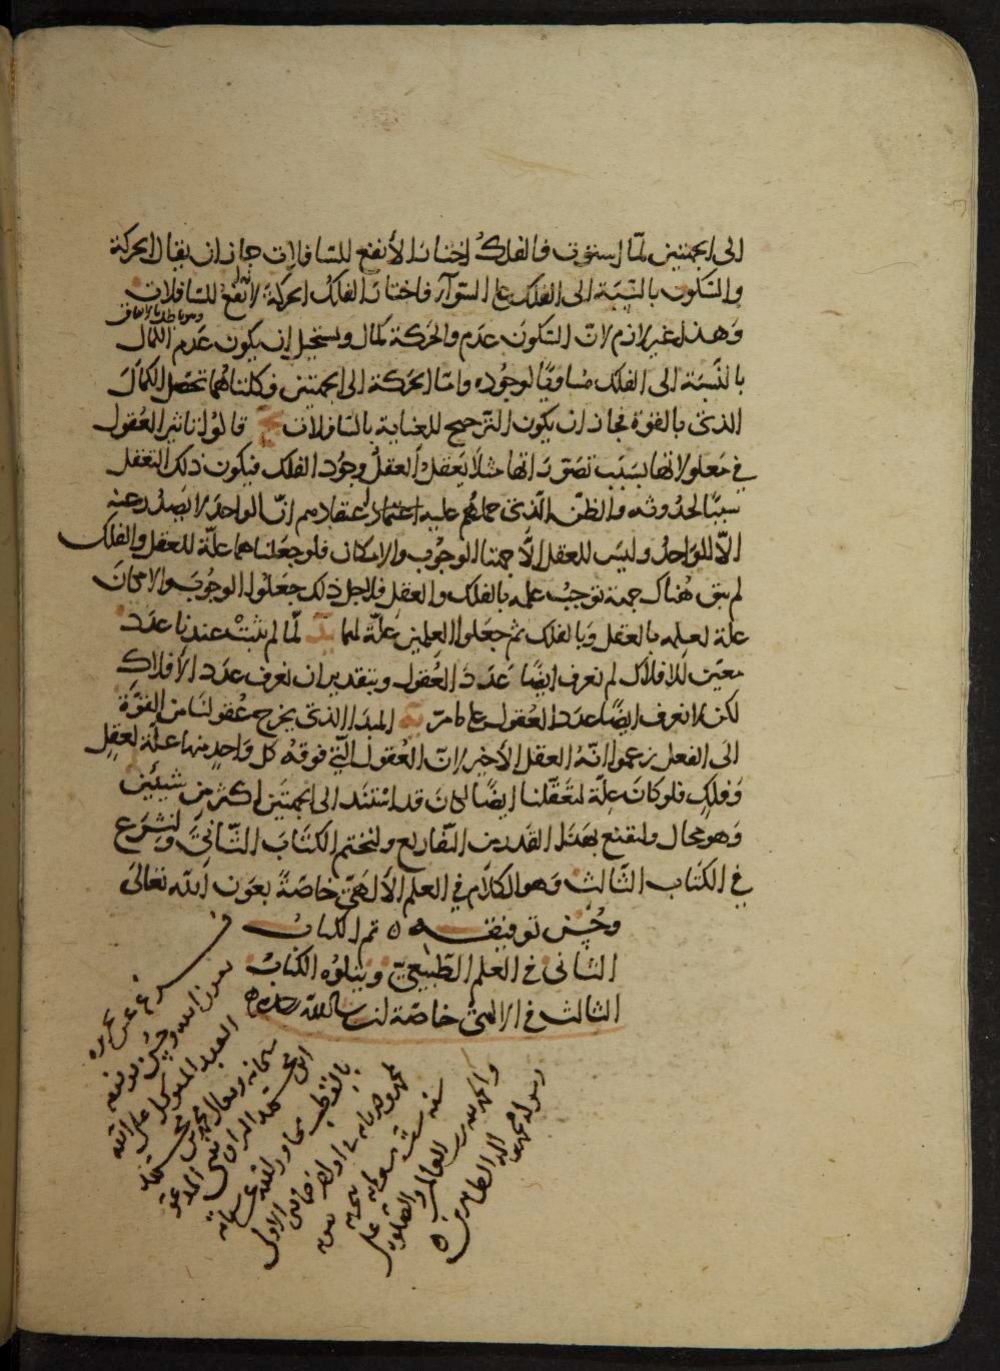 الى الجهتين لمّا استوت فالفلك اختار الأنفع للسافلات جاز ان يقال الحركة
والسكون بالنسبة الى الفلك على السواء فاختار الفلك الحركة لانه انفع للسافلات
وهذا غير لازم لان السكون عدم والحركة كمال ويستحيل ان يكون عدم الكمال
بالنسبة الى الفلك مساويًا لوجوده واما الحركة الى الجهتين فكلتاهما تحصل الكمال
الذي بالقوة فجاز ان يكون الترجيح للعناية بالسافلات يج قالوا تاثير العقول
في معلولاتها بسبب تصوراتها مثلا يعقل العقل وجود الفلك فيكون ذلك التعقل
سببًا لحدوثه والظن الذي حملهم عليه اعتقادهم ان الواحد لا يصدر عنه
الا الواحد وليس للعقل الا جهتا الوجوب والامكان فلو جعلناهما علة للعقل والفلك
لم يبق هناك جهة توجب علمه بالفلك والعقل فلاجل ذلك جعلوا الوجوب والامكان
علة لعلمه بالعقل وبالفلك ثم جعلوا العلمين علة لهما يد لما لم يثبت عندنا عدد
معين للافلاك لم نعرف ايضًا عدد العقول وبتقدير ان نعرف عدد الافلاك
لكن لا نعرف ايضًا عدد العقول على ما مر يه المبدا الذي يخرج عقولنا من القوة
الى الفعل زعموا انه العقل الاخير لان العقول التي فوقه كل واحد منها علة لعقل
وفلك فلو كان علة لتعقلنا ايضًا لكان قد استند الى الجهتين اكثر من شيئين
وهو محال ولنقنع بهذا القدر من التفاريع ولنختم الكتاب الثاني ولنشرع
في الكتاب الثالث وهو الكلام في العلم الالهي خاصة بعون الله تعالى
وحسن توفيقه ه تم الكتاب
الثاني في العلم الطبيعي ويتلوه الكتاب
الثالث في الالهي خاصة ان شاء الله
فرغ عن تحريره
بعون الله وحسن توفيقه
العبد المتوكل على الله
والحمد لله رب العالمين والصلوة على
رسوله محمد وآله الطاهرين ه